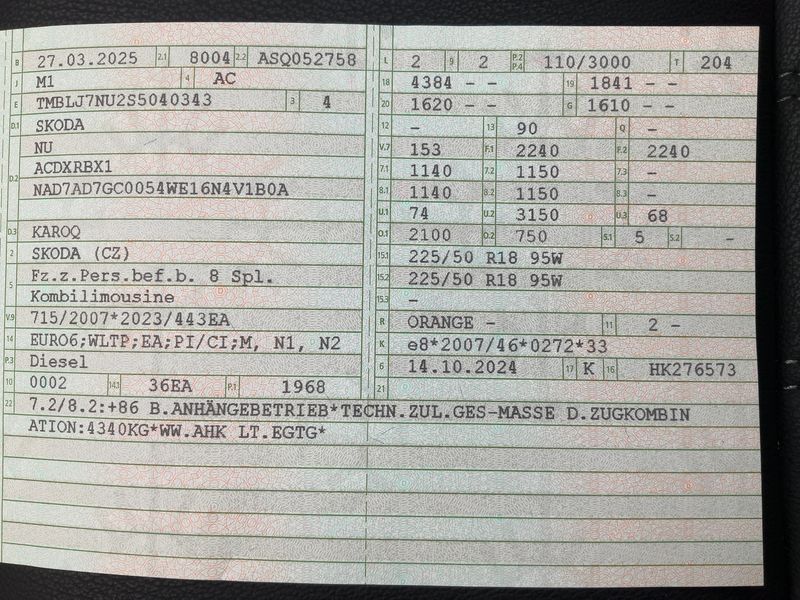 B 27.03.2025 2.1 8004 2.2 ASQ052758
J M1 4 AC
E TMBLJ7NU2S5040343 3 4
D.1 SKODA
D.2 NU
ACDXRBX1
NAD7AD7GC0054WE16N4V1B0A
D.3 KAROQ
2 SKODA (CZ)
5 Fz.z.Pers.bef.b. 8 Spl.
Kombilimousine
V.9 715/2007*2023/443EA
14 EURO6;WLTP;EA;PI/CI;M, N1, N2
P.3 Diesel
10 0002 14.1 36EA P.1 1968
L 2 9 2 P.2 P.4 110/3000 T 204
18 4384 - - 19 1841 - -
20 1620 - - G 1610 - -
12 - 13 90 Q -
V.7 153 F.1 2240 F.2 2240
7.1 1140 7.2 1150 7.3 -
8.1 1140 8.2 1150 8.3 -
U.1 74 U.2 3150 U.3 68
O.1 2100 O.2 750 S.1 5 S.2 -
15.1 225/50 R18 95W
15.2 225/50 R18 95W
15.3 -
R ORANGE - 11 2 -
K e8*2007/46*0272*33
6 14.10.2024 17 K 16 HK276573
21
22 7.2/8.2:+86 B.ANHÄNGEBETRIEB*TECHN.ZUL.GES-MASSE D.ZUGKOMBIN
ATION:4340KG*WW.AHK LT.EGTG*